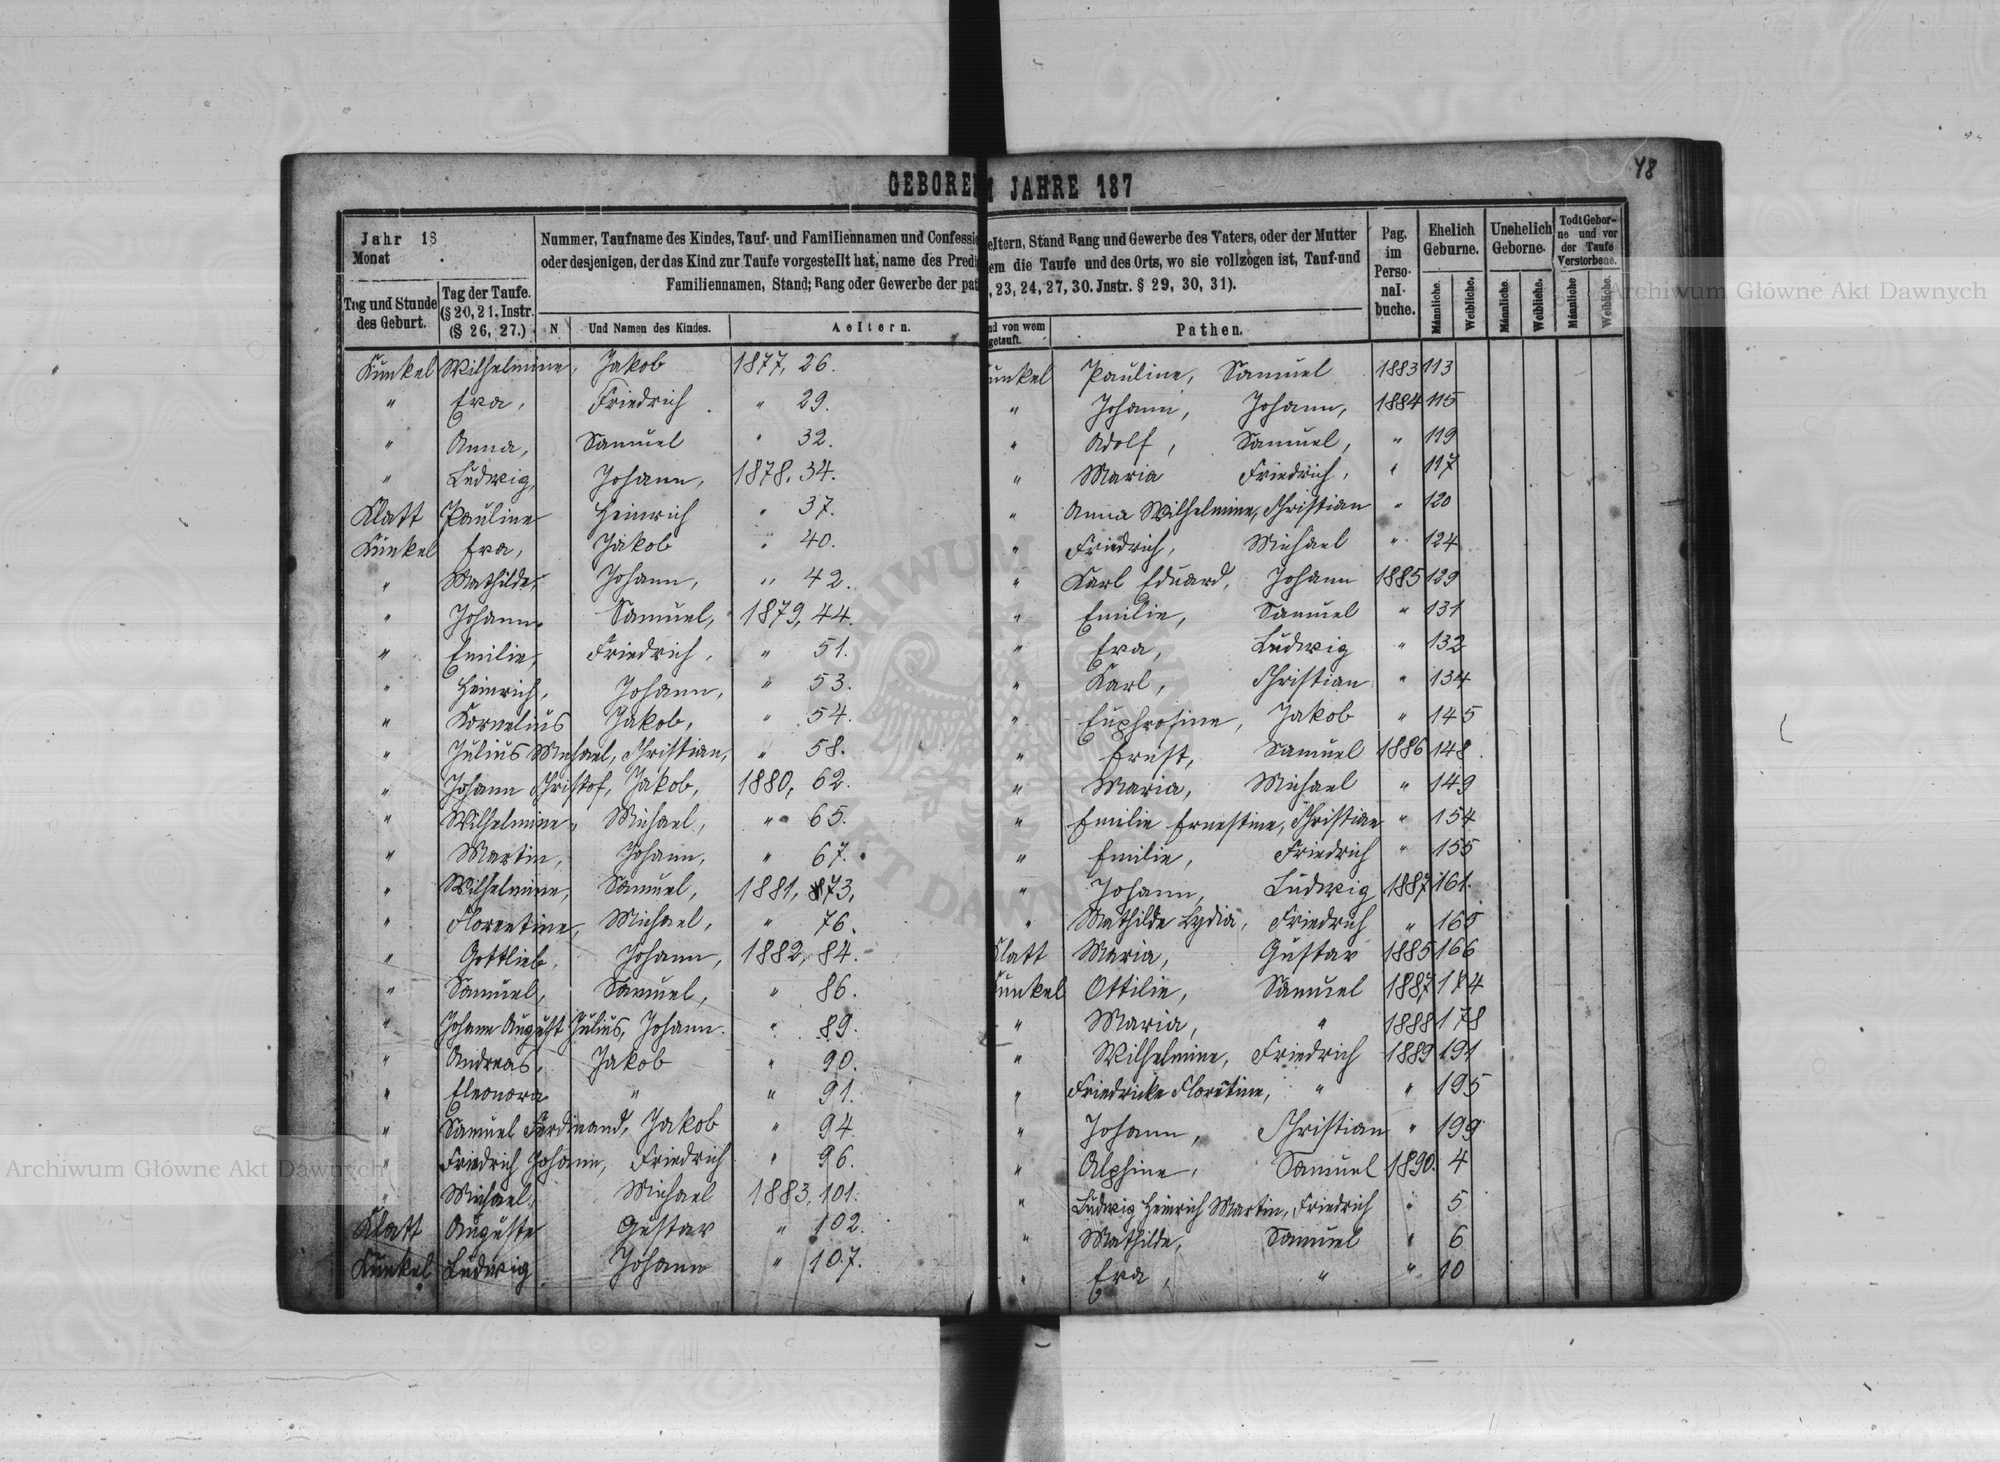 48
GEBOREN JAHRE 187
Jahr 18
Monat
Tag und Stunde des Geburt.
Tag der Taufe. (§ 20, 21. Instr. (§ 26, 27.)
Nummer, Taufname des Kindes, Tauf- und Familiennamen und Confessi
oder desjenigen, der das Kind zur Taufe vorgestellt hat, name des Predi
Familiennamen, Stand; Rang oder Gewerbe der pat
N
Und Namen des Kindes.
Aeltern.
Kunkel Wilhelmine, Jakob 1877, 26.
" Eva, Friedrich " 29.
" Anna, Samuel " 32.
" Ludwig, Johann, 1878. 34.
Klatt Pauline Heinrich " 37.
Kunkel Eva, Jakob " 40.
" Mathilde, Johann, " 42.
" Johann, Samuel, 1879, 44.
" Emilie, Friedrich, " 51.
" Heinrich, Johann, " 53.
" Kornelius Jakob, " 54.
" Julius Michael, Christian, " 58.
" Johann Christof, Jakob, 1880, 62.
" Wilhelmine, Michael, " 65.
" Martin, Johann, " 67.
" Wilhelmine, Samuel, 1881, 73,
" Florentine, Michael, " 76.
" Gottlieb, Johann, 1882, 84.
" Samuel, Samuel, " 86.
" Johann August Julius, Johann. " 89.
" Andreas, Jakob " 90.
" Eleonora " " 91.
" Samuel Ferdinand, Jakob " 94.
" Friedrich Johann, Friedrich " 96.
" Michael, Michael 1883, 101.
Klatt Auguste Gustav " 102.
Kunkel Ludwig Johann " 107.
eltern, Stand Rang und Gewerbe des Vaters, oder der Mutter
em die Taufe und des Orts, wo sie vollzogen ist, Tauf-und
, 23, 24, 27, 30. Instr. § 29, 30, 31).
nd von wem getauft.
Pathen.
Pag. im Perso-nal-buche.
Ehelich Geburne.
Unehelich Geborne.
Todt Gebor-ne und vor der Taufe Verstorbene.
Männliche. Weibliche. Männliche. Weibliche. Männliche Weibliche.
unkel Pauline, Samuel 1883 113
" Johann, Johann, 1884 115
" Adolf, Samuel, " 119
" Maria Friedrich, " 117
" Anna Wilhelmine, Christian " 120
" Friedrich, Michael " 124
" Karl Eduard, Johann 1885 129
" Emilie, Samuel " 131
" Eva, Ludwig " 132
" Karl, Christian " 134
" Euphrosine, Jakob " 145
" Ernst, Samuel 1886 148
" Maria, Michael " 149
" Emilie Ernestine, Christian " 154
" Emilie, Friedrich " 155
" Johann, Ludwig 1887 161.
" Mathilde Lydia, Friedrich " 165
Klatt Maria, Gustav 1885 166
unkel Ottilie, Samuel 1887 174
" Maria, " 1888 178
" Wilhelmine, Friedrich 1889 191
" Friedricke Florentine, " " 195
" Johann, Christian " 199
" Alphine, Samuel 1890. 4
" Ludwig Heinrich Martin, Friedrich " 5
" Mathilde, Samuel " 6
" Eva, " " 10
Archiwum Główne Akt Dawnych
Archiwum Główne Akt Dawnych